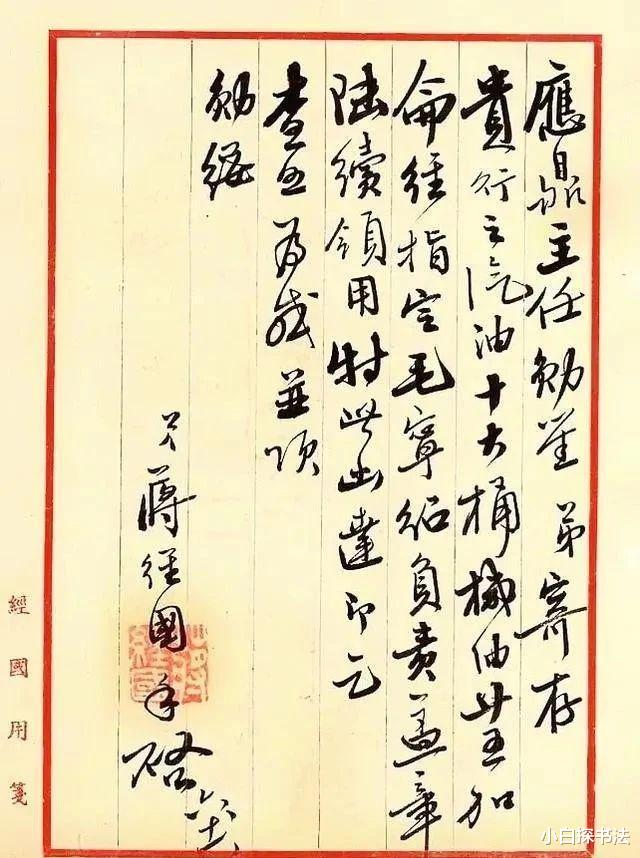 應鼎主任勛鑒 弟寄存
貴行之汽油十大桶機油廿五加
侖經指定毛寧紹負責蓋章
陸續領用特此函達即乞
查照為感並頌
勛綏
弟蔣經國手啟
經國用箋
小白探书法